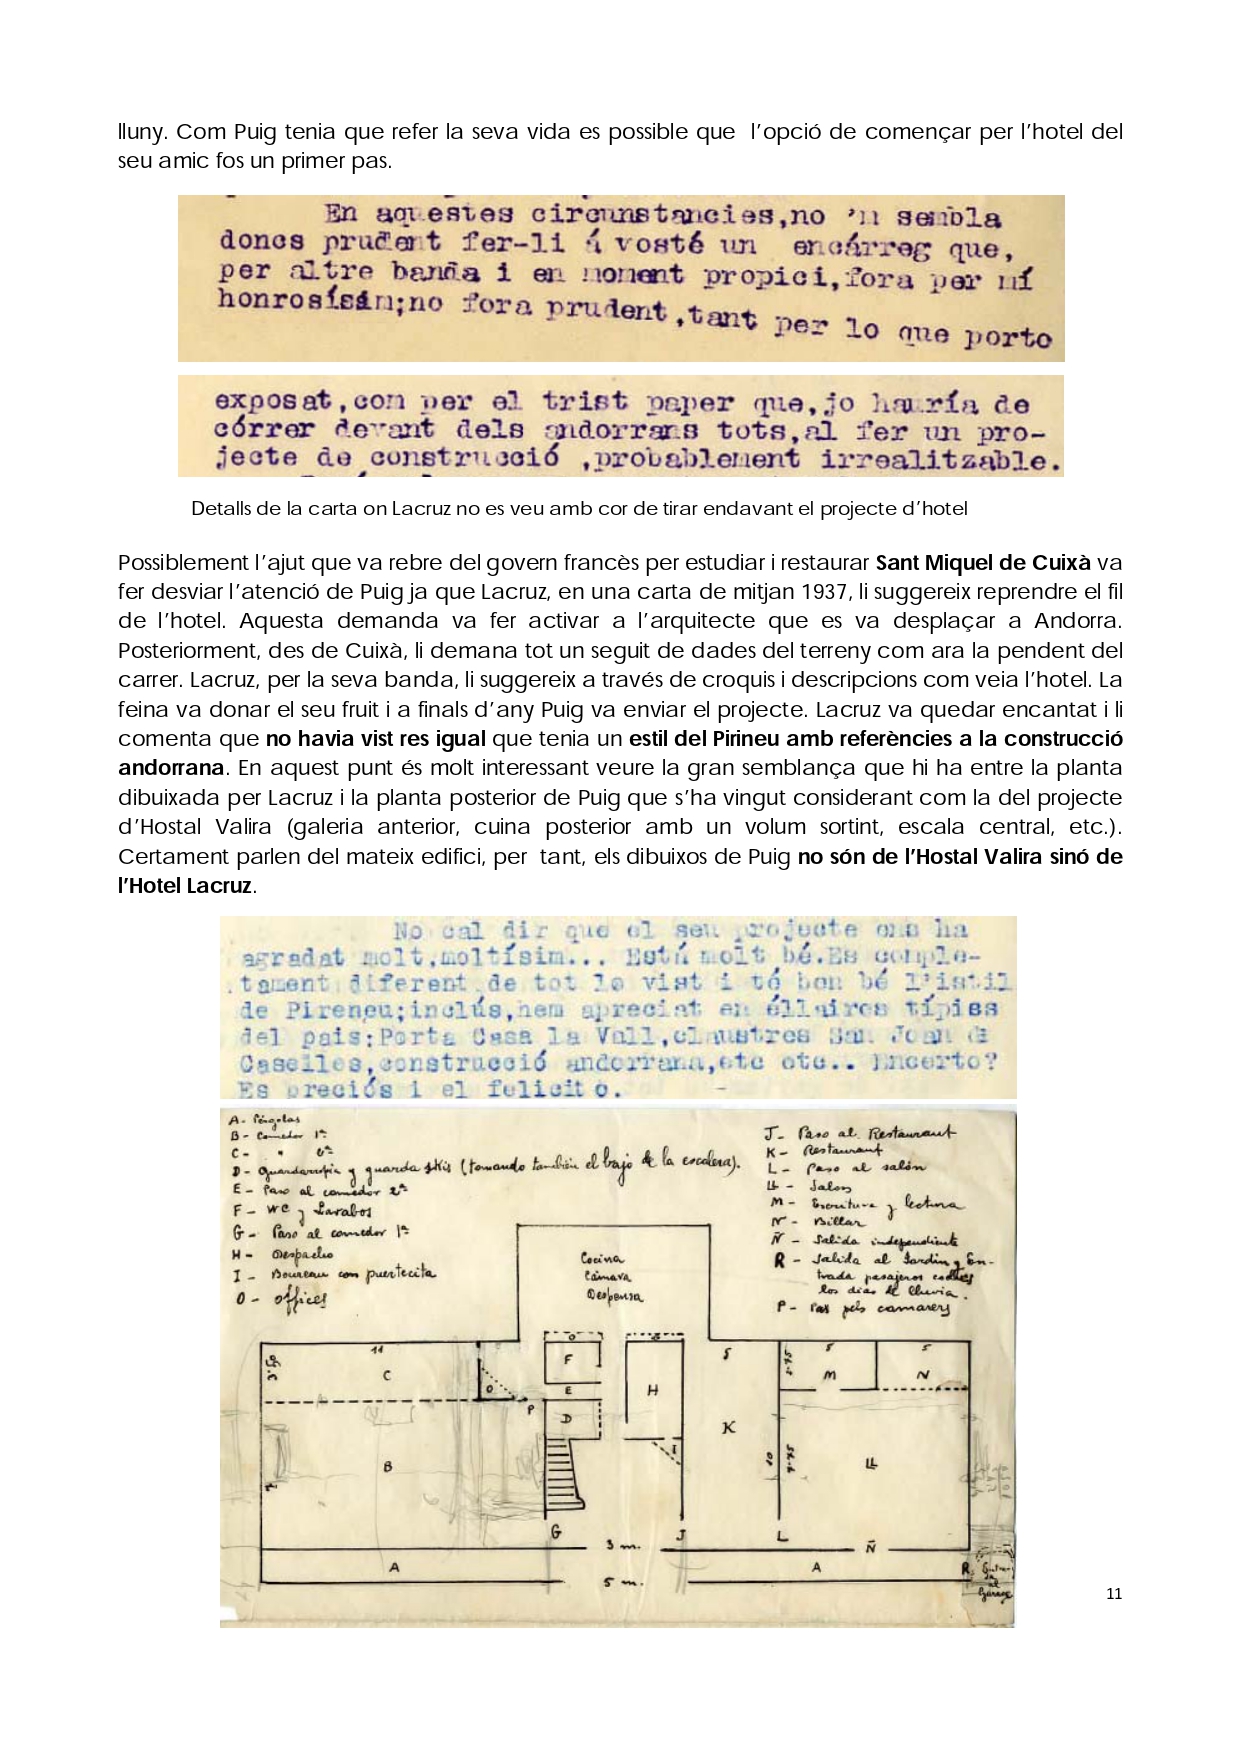 lluny. Com Puig tenia que refer la seva vida es possible que l’opció de començar per l’hotel del
seu amic fos un primer pas.
En aquestes circunstancies,no 'm sembla
doncs prudent fer-li á vosté un encárreg que,
per altre banda i en moment propici,fora per mí
honrosísim;no fora prudent,tant per lo que porto
exposat,com per el trist paper que,jo hauría de
córrer devant dels andorrans tots,al fer un pro-
jecte de construcció ,probablement irrealitzable.
Detalls de la carta on Lacruz no es veu amb cor de tirar endavant el projecte d’hotel
Possiblement l’ajut que va rebre del govern francès per estudiar i restaurar Sant Miquel de Cuixà va
fer desviar l’atenció de Puig ja que Lacruz, en una carta de mitjan 1937, li suggereix reprendre el fil
de l’hotel. Aquesta demanda va fer activar a l’arquitecte que es va desplaçar a Andorra.
Posteriorment, des de Cuixà, li demana tot un seguit de dades del terreny com ara la pendent del
carrer. Lacruz, per la seva banda, li suggereix a través de croquis i descripcions com veia l’hotel. La
feina va donar el seu fruit i a finals d’any Puig va enviar el projecte. Lacruz va quedar encantat i li
comenta que no havia vist res igual que tenia un estil del Pirineu amb referències a la construcció
andorrana. En aquest punt és molt interessant veure la gran semblança que hi ha entre la planta
dibuixada per Lacruz i la planta posterior de Puig que s’ha vingut considerant com la del projecte
d’Hostal Valira (galeria anterior, cuina posterior amb un volum sortint, escala central, etc.).
Certament parlen del mateix edifici, per tant, els dibuixos de Puig no són de l’Hostal Valira sinó de
l’Hotel Lacruz.
No cal dir que el seu projecte ens ha
agradat molt,moltísim... Está molt bé.Es comple-
tament diferent de tot lo vist i té bon bé l'istil
de Pireneu;inclús,hem apreciat en éll aires típics
del pais:Porta Casa la Vall,claustres San Joan de
Caselles,construcció andorrana,etc etc.. Encerto?
Es preciós i el felicito.
A- Pérgolas
B- Comedor 1ª
C- " 2ª
D- Guardarropia y guarda skis (tomando también el bajo de la escalera).
E- Paso al comedor 2ª
F- WC y Lavabos
G- Paso al comedor 1ª
H- Despacho
I- Boureau con puertecita
O- Offices
J- Paso al Restaurant
K- Restaurant
L- Paso al salón
LL- Salon
M- Escritura y lectura
N- Billar
Ñ- Salida independiente
R- Salida al Jardín y En-
trada pasajeros coches
los dias de lluvia.
P- Pas pels camarers
Cocina
Cámara
Despensa
11
C
O
P
F
E
D
H
I
5
K
5
M
5
N
B
10
LL
G
J
L
Ñ
3 m.
A
A
5 m.
R
Garage
11